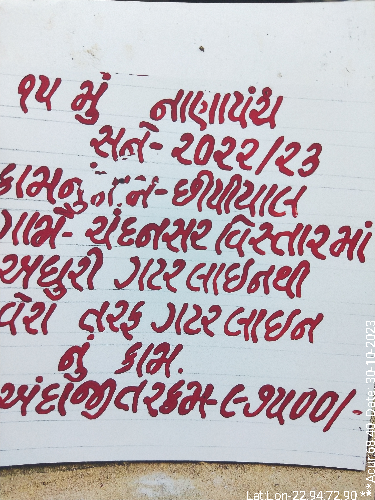 ૧૫ મું નાણાપંચ
સને- ૨૦૨૨/૨૩
કામનું નામ- છીપીયાલ
ગામે- ચંદનસર વિસ્તારમાં
અધુરી ગટર લાઇનથી
વેરા તરફ ગટર લાઇન
નું કામ.
અંદાજીત રકમ- ૯૭૫૦૦/-
Lat Lon-22.94:72.90 ***
Date: 30-10-2023